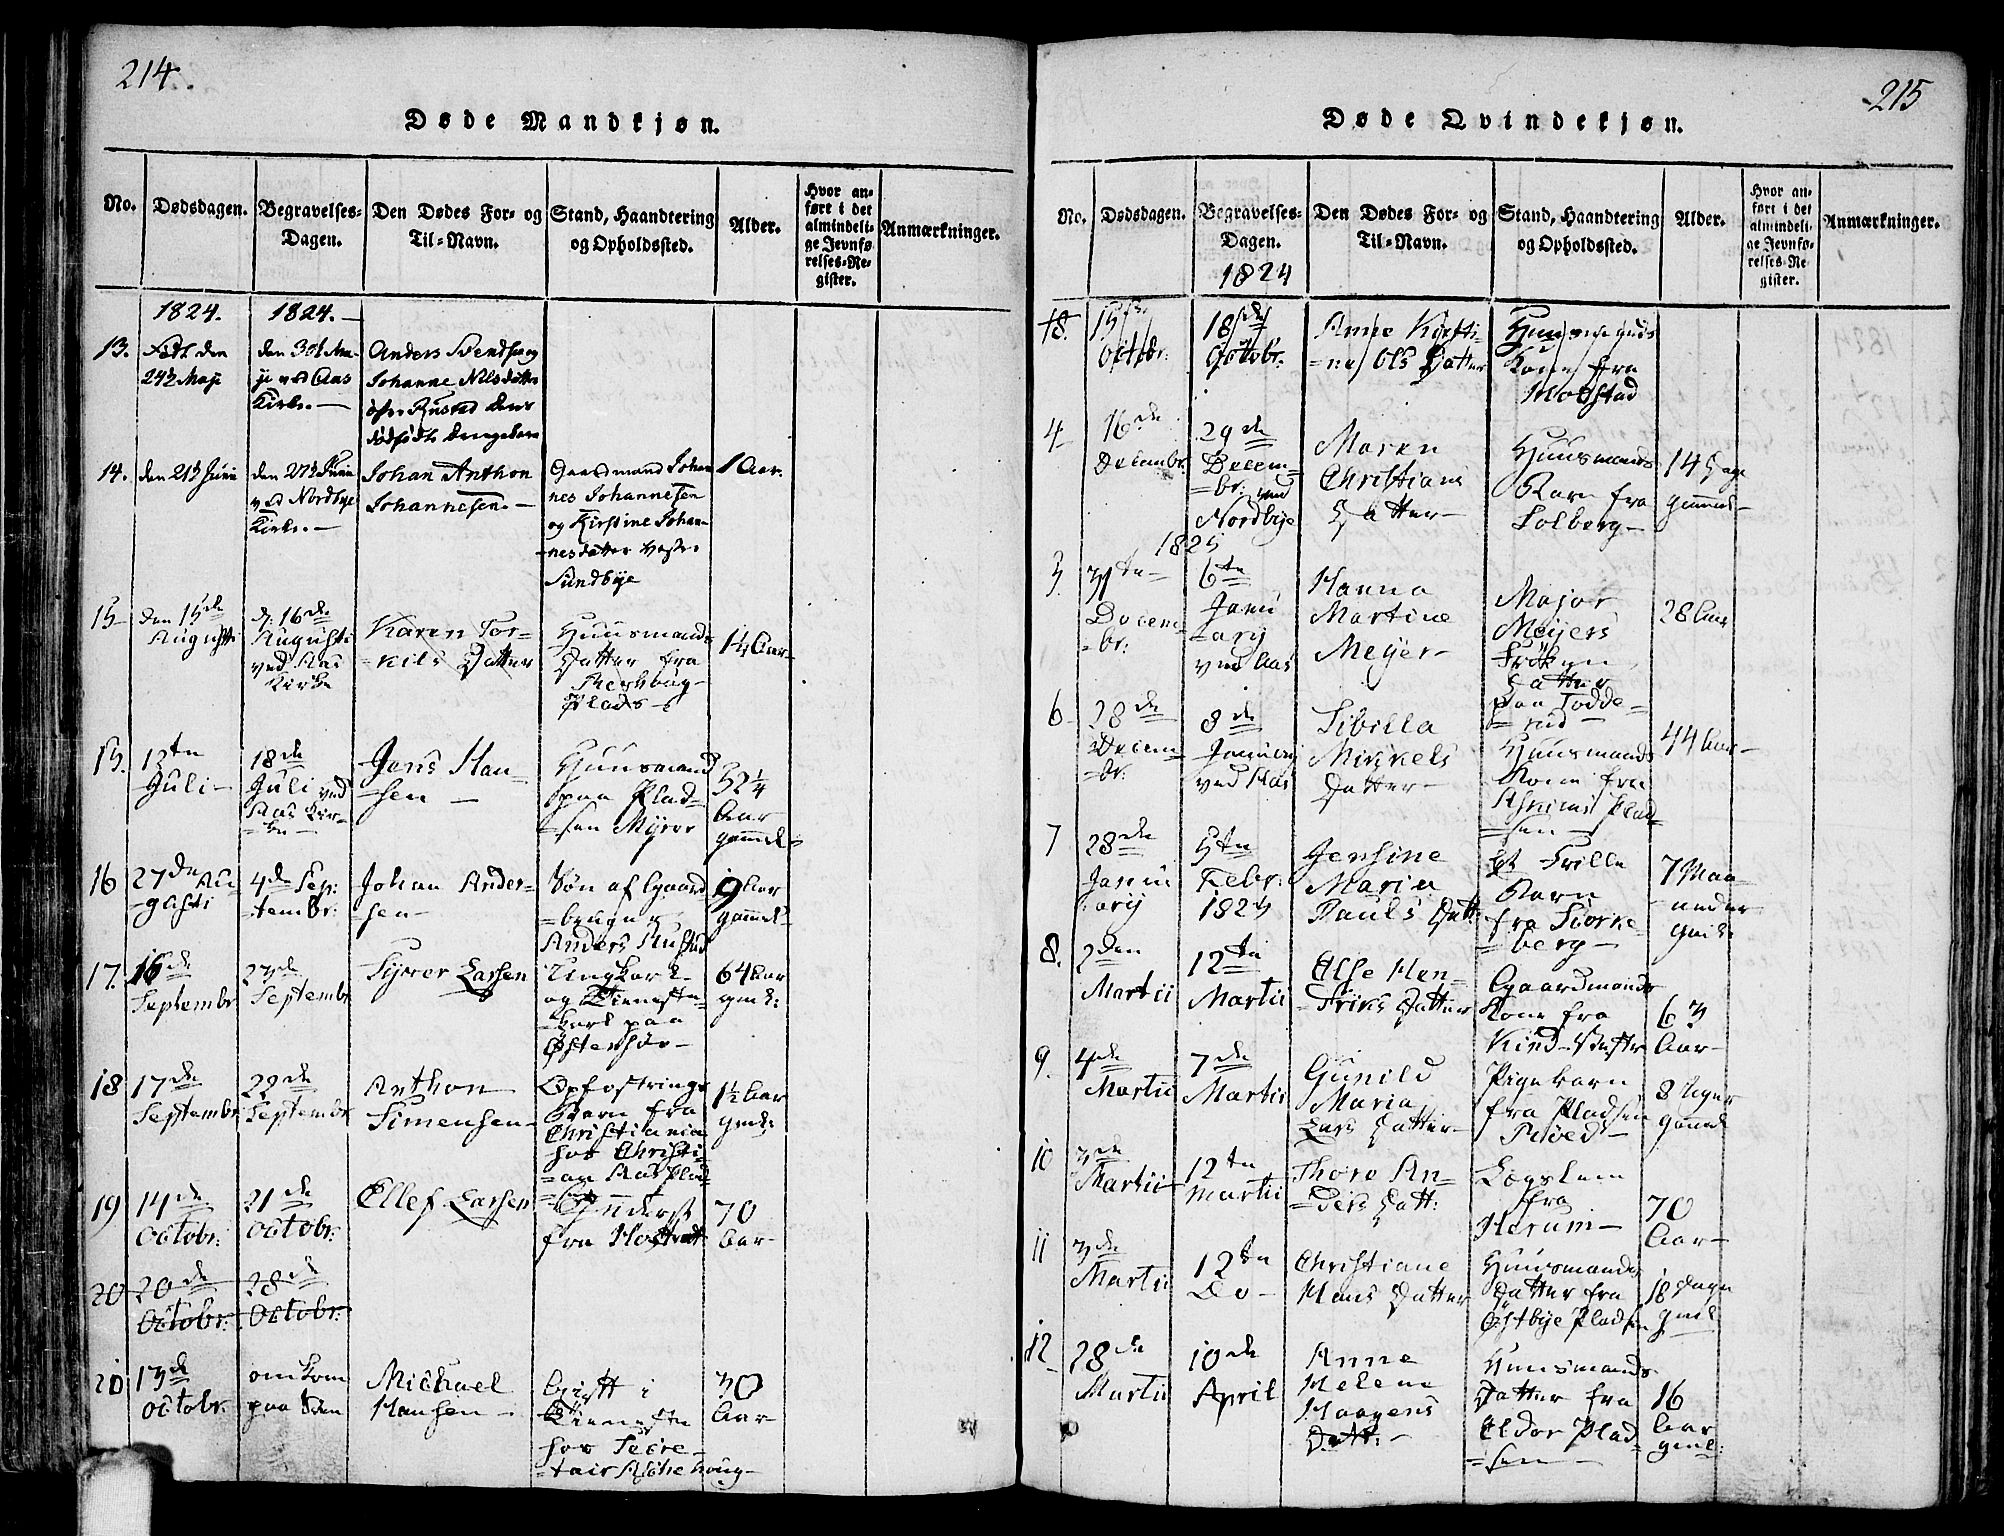 214.
Døde Mandkjøn.
No.
Dødsdagen.
Begravelses-
Dagen.
Den Dødes For- og
Til-Navn.
Stand, Haandtering
og Opholdssted.
Alder.
Hvor an-
ført i det
almindeli-
ge Jevnfø-
relses-Re-
gister.
Anmærkninger.
1824.
1824.
13.
Født den
24d Maji
den 30d Ma-
ji ved Aas
Kirke.
Anders Svendsen og
Johanne Nilsdatter
Rustad deres
dødfødte Drengebarn
14.
den 21d Juni
den 27d Juni
ved Nordbye
Kirke.
Johan Anthon
Johannesen.
Gaardmand Johan
nes Johannesen
og Kirstine Johan-
nesdatter
Sundbye
1 Aar.
15
den 15de
Augusti
d. 16de
Augusti
ved Aas
Kirke
Karen Tor-
kils Datter
Huusmands
Datter fra
Plads
14 Aar
15.
13tn
Juli
18de
Juli ved
Aas Kir-
ke
Jens Han-
sen
Huusmand
paa Plad-
sen Myrer
52 1/4
Aar
gammel
16
27de Au-
gusti
4de Sep-
tembr:
Johan Ander-
sen
Søn af Gaard
-bruger
Anders Rustad
9 Aar
gammel
17.
16de
Septembr
23de
Septembr
Syver Larsen
Ungkarl
og Tieneste-
karl paa
Østensiøe
64 Aar
gml:
18
17de
Septembr
22de
Septembr
Anthon
Simensen
Opfostrings
Barn fra
Christiania
hos Christi-
an Aas Plad-
sen
1½ Aar
gml:
19
14de
Octobr:
21de
Octobr:
Ellef Larsen
fra
70
Aar
20
20de
Octobr:
28de
Octobr:
20
13de
Octobr.
omkom
paa Søen
Michael
Hansen
Gift i
Tieneste
hos Secre-
tair Aschehoug
30
Aar
215
Døde Qvindekjøn.
No.
Dødsdagen.
Begravelses-
Dagen.
1824
Den Dødes For- og
Til-Navn.
Stand, Haandtering
og Opholdssted.
Alder.
Hvor an-
ført i det
almindeli-
ge Jevnfø-
relses-Re-
gister.
Anmærkninger.
18.
15de
Octobr:
18de
Octobr:
Anne Kirsti-
ne Ols Datter
Huusmands
Kone fra
Mogstad
4
16de
Decembr.
29de
Decem-
br: ved
Nordbye
Maren
Christians
Datter
Huusmands
Barn fra
Solberg
14 Dage
gammel
1825
5.
31tn
Decem-
br:
6tn
Janu
ary
ved Aas
Hanna
Martine
Meyer
Major
Meijers
Frøken
Datter
paa Todde-
rud
28 Aar
6
28de
Decem-
br:
8de
Januarij
ved Aas
Sibilla
Mikkels
Datter
Huusmands
Kone fra
Askims Plad-
sen
44 Aar
7
28de
Janu
arij
5tn
Febr:
1825
Jensine
Maria
Pauls Datt:
Et Frille
Barn
fra Storke-
berg
7 Maa-
neder
gml:
8.
2den
Martii
12tn
Martii
Else Hen-
driks Datter
Gaardmands
Kone fra
Kind Vestre
63
Aar
9.
4de
Martii
7de
Martii
Gunild
Maria
Lars Datter
Pigebarn
fra Pladsen
8 Uger
gammel
10
3de
Martii
12tn
Martii
Thore An-
ders Datt:
Lægslem
fra
Herum
70
Aar
11
3de
Martii
12tn
Do
Christiane
Hans Datter
Huusmands
Datter fra
Østbye Pladsen
18 Dage
gml:
12
28de
Martii
10de
April
Anne
Helene
Haagens
Datt:
Huusmands
Datter fra
Eldor Plad-
sen
16
Aar
gml: